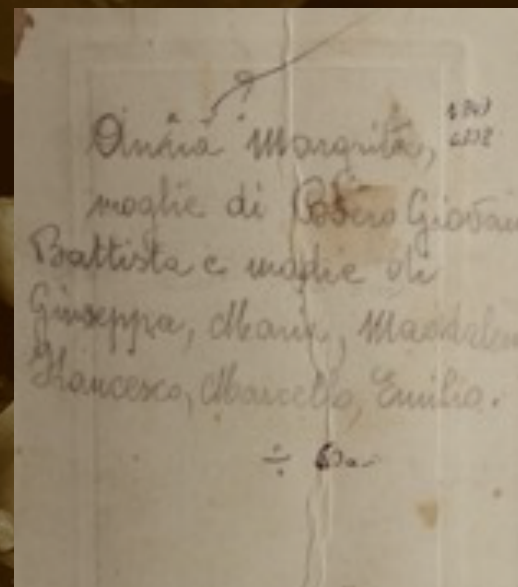 Margrita,
moglie di Giovan
Battista e madre di
Giuseppa, Maria, Maddalen
Francesco, Marcello, Emilio.